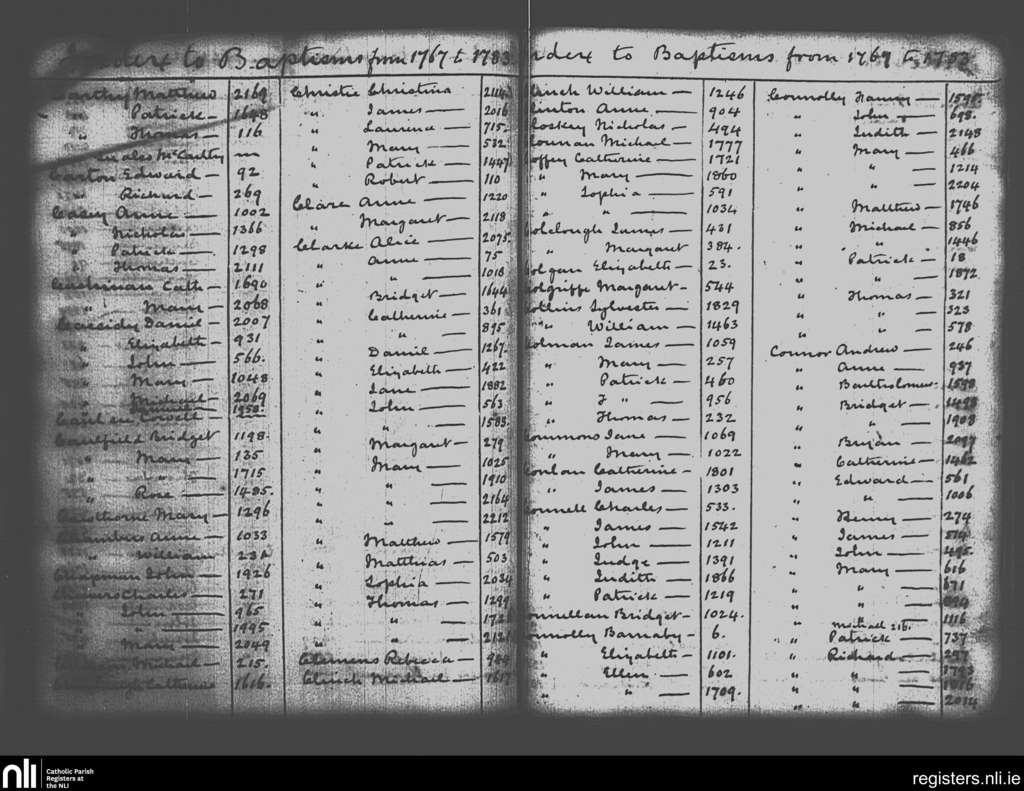 Index to Baptisms from 1767 to 1783
McCarthy Matthew 2169
" Patrick — 1648
" Thomas — 116
alas McCarthy —
Carton Edward — 92
" Richard — 269
Casey Anne — 1002
" Nicholas — 1366
" Patrick — 1298
" Thomas — 2111
Cushinan Cath — 1690
" Mary — 2068
Cassidy Daniel — 2007
" Elizabeth — 931
" John — 566.
" Mary — 1048
" Michael — 2069
1958
Caulfield Bridget 1198.
" Mary — 135
" " — 1715
" Rose — 1485.
Mary — 1296
Chambers Anne — 1033
" William 23
Chapman John — 1926
Charles — 271
" John — 965
" " — 1995
" Mary — 2049
Michael — 215.
Catherine 1616.
Christie Christina 2114
" James — 2016
" Laurence — 715.
" Mary — 532
" Patrick — 1447
" Robert — 110
Clare Anne — 1220
" Margaret — 2118
Clarke Alice — 2075
" Anne — 75
" " — 1018
" Bridget — 1644
" Catherine — 361
" " — 895
" Daniel — 1267
" Elizabeth — 422
" Jane — 1882
" John — 563
" " — 1583
" Margaret — 279
" Mary — 1025
" " — 1910
" " — 2164
" " — 2212
" Matthew — 1579
" Matthias — 503
" Sophia — 2034
" Thomas — 1299
" " — 172
" " — 2121
Clemens Rebecca — 984
Clinch Michael — 1617
ndex to Baptisms from 1767 to 1783
Clinch William — 1246
Clinton Anne — 904
Closkey Nicholas — 494
Michael — 1777
Coffey Catherine — 1721
" Mary — 1860
" Sophia — 591
" " — 1034
Colclough James — 431
" Margaret 384.
Colgan Elizabeth — 23.
Colgriffe Margaret — 544
Collins Sylvester — 1829
" William — 1463
Colman James — 1059
" Mary — 257
" Patrick — 460
" J " — 956
" Thomas — 232
Commons Jane — 1069
" Mary — 1022
Conlan Catherine — 1801
" James — 1303
Connell Charles — 533.
" James — 1542
" John — 1211
" Judge — 1391
" Judith — 1866
" Patrick — 1219
Connellan Bridget — 1024.
Connolly Barnaby — 6.
" Elizabeth — 1101.
" Ellen — 602
" " — 1709.
Connolly Fanny — 1595
" John — 698.
" Judith — 2148
" Mary — 466
" " — 1214
" " — 2204
" Matthew — 1746
" Michael — 856
" " — 1446
" Patrick — 18
" " — 1872
" Thomas — 321
" " — 323
" " — 578
Connor Andrew — 246
" Anne — 937
" Bartholomew 1598
" Bridget — 1498
" " — 1908
" Bryan — 2097
" Catherine — 1462
" Edward — 561
" " — 1006
" Henry — 274
" James — 514
" John — 495.
" Mary — 616
" " — 671
" " —
" " — 1116
Michael 216.
" Patrick — 737
" Richard — 297
" " — 1793
" " — 1816
" " — 2014
nli
Catholic Parish
Registers at
the NLI
registers.nli.ie